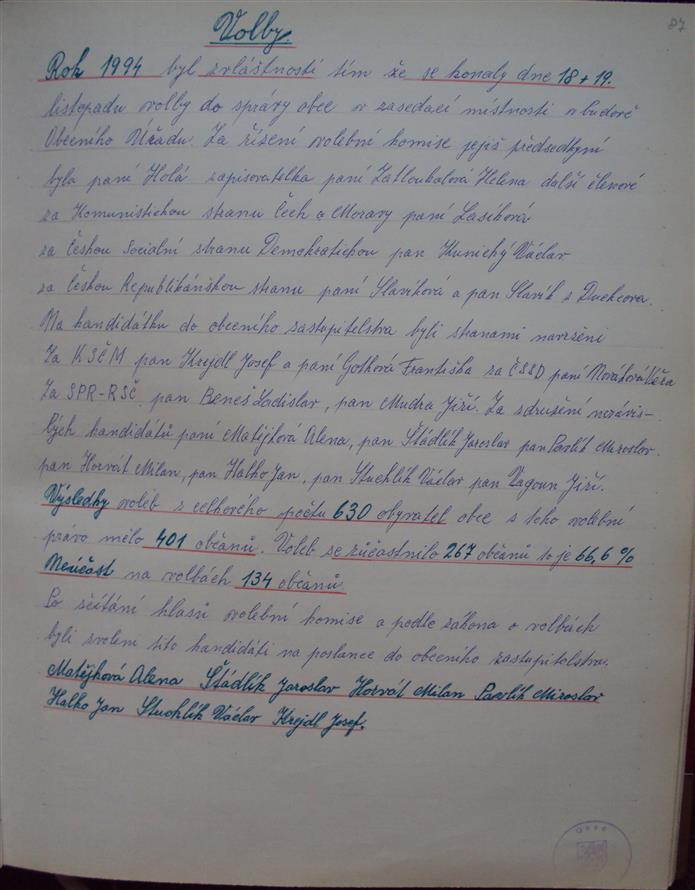 87
Volby.
Rok 1994 byl zvláštností tím že se konaly dne 18 + 19.
listopadu volby do správy obce v zasedací místnosti v budově
Obecního Úřadu. Za řízení volební komise jejiš předsedkyní
byla paní Holá zapisovatelka paní Zatloukalová Helena další členové
za Komunistickou stranu Čech a Moravy paní Lasíková
za Českou Socialní stranu Demokratickou pan Kunický Václav
za Českou Republikánskou stranu paní Slavíková a pan Slavík z Duchcova.
Na kandidátku do obecního zastupitelstva byli stranami navrženi
Za KSČM pan Krejdl Josef a paní Gotková Františka za ČSSD paní Nováková Věra
Za SPR-RSČ. pan Beneš Ladislav, pan Mudra Jiří. Za sdružení nezávis-
lých kandidátů paní Matějková Alena, pan Štádlík Jaroslav pan Pavlík Miroslav.
pan Horvát Milan, pan Halko Jan, pan Stuchlík Václav pan Vagoun Jiří.
Výsledky voleb z celkového počtu 630 obyvatel obce s toho volební
právo mělo 401 občanů. Voleb se zůčastnilo 267 občanů to je 66,6 %
Neúčast na volbách 134 občanů.
Po sčítání hlasů volební komise a podle zákona o volbách
byli zvolem tito kandidáti na poslance do obecního zastupitelstva.
Matějková Alena Štádlík Jaroslav Horvát Milan Pavlík Miroslav
Halko Jan Stuchlík Václav Krejdl Josef.